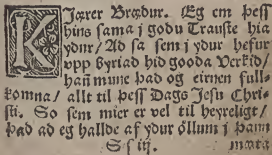 KJærer Brædur. Eg em þess
hins sama i godu Trauste hia
ydur/ Ad sa sem i ydur hefur
vpp byriad hid gooda Verkid/
hañ mune þad og eirnen full-
komna/ allt til þess Dags Jesu Christi-
sti. So sem mier er vel til heyreligt/
þad ad eg hallde af ydur øllum i þann
S s iij. mata